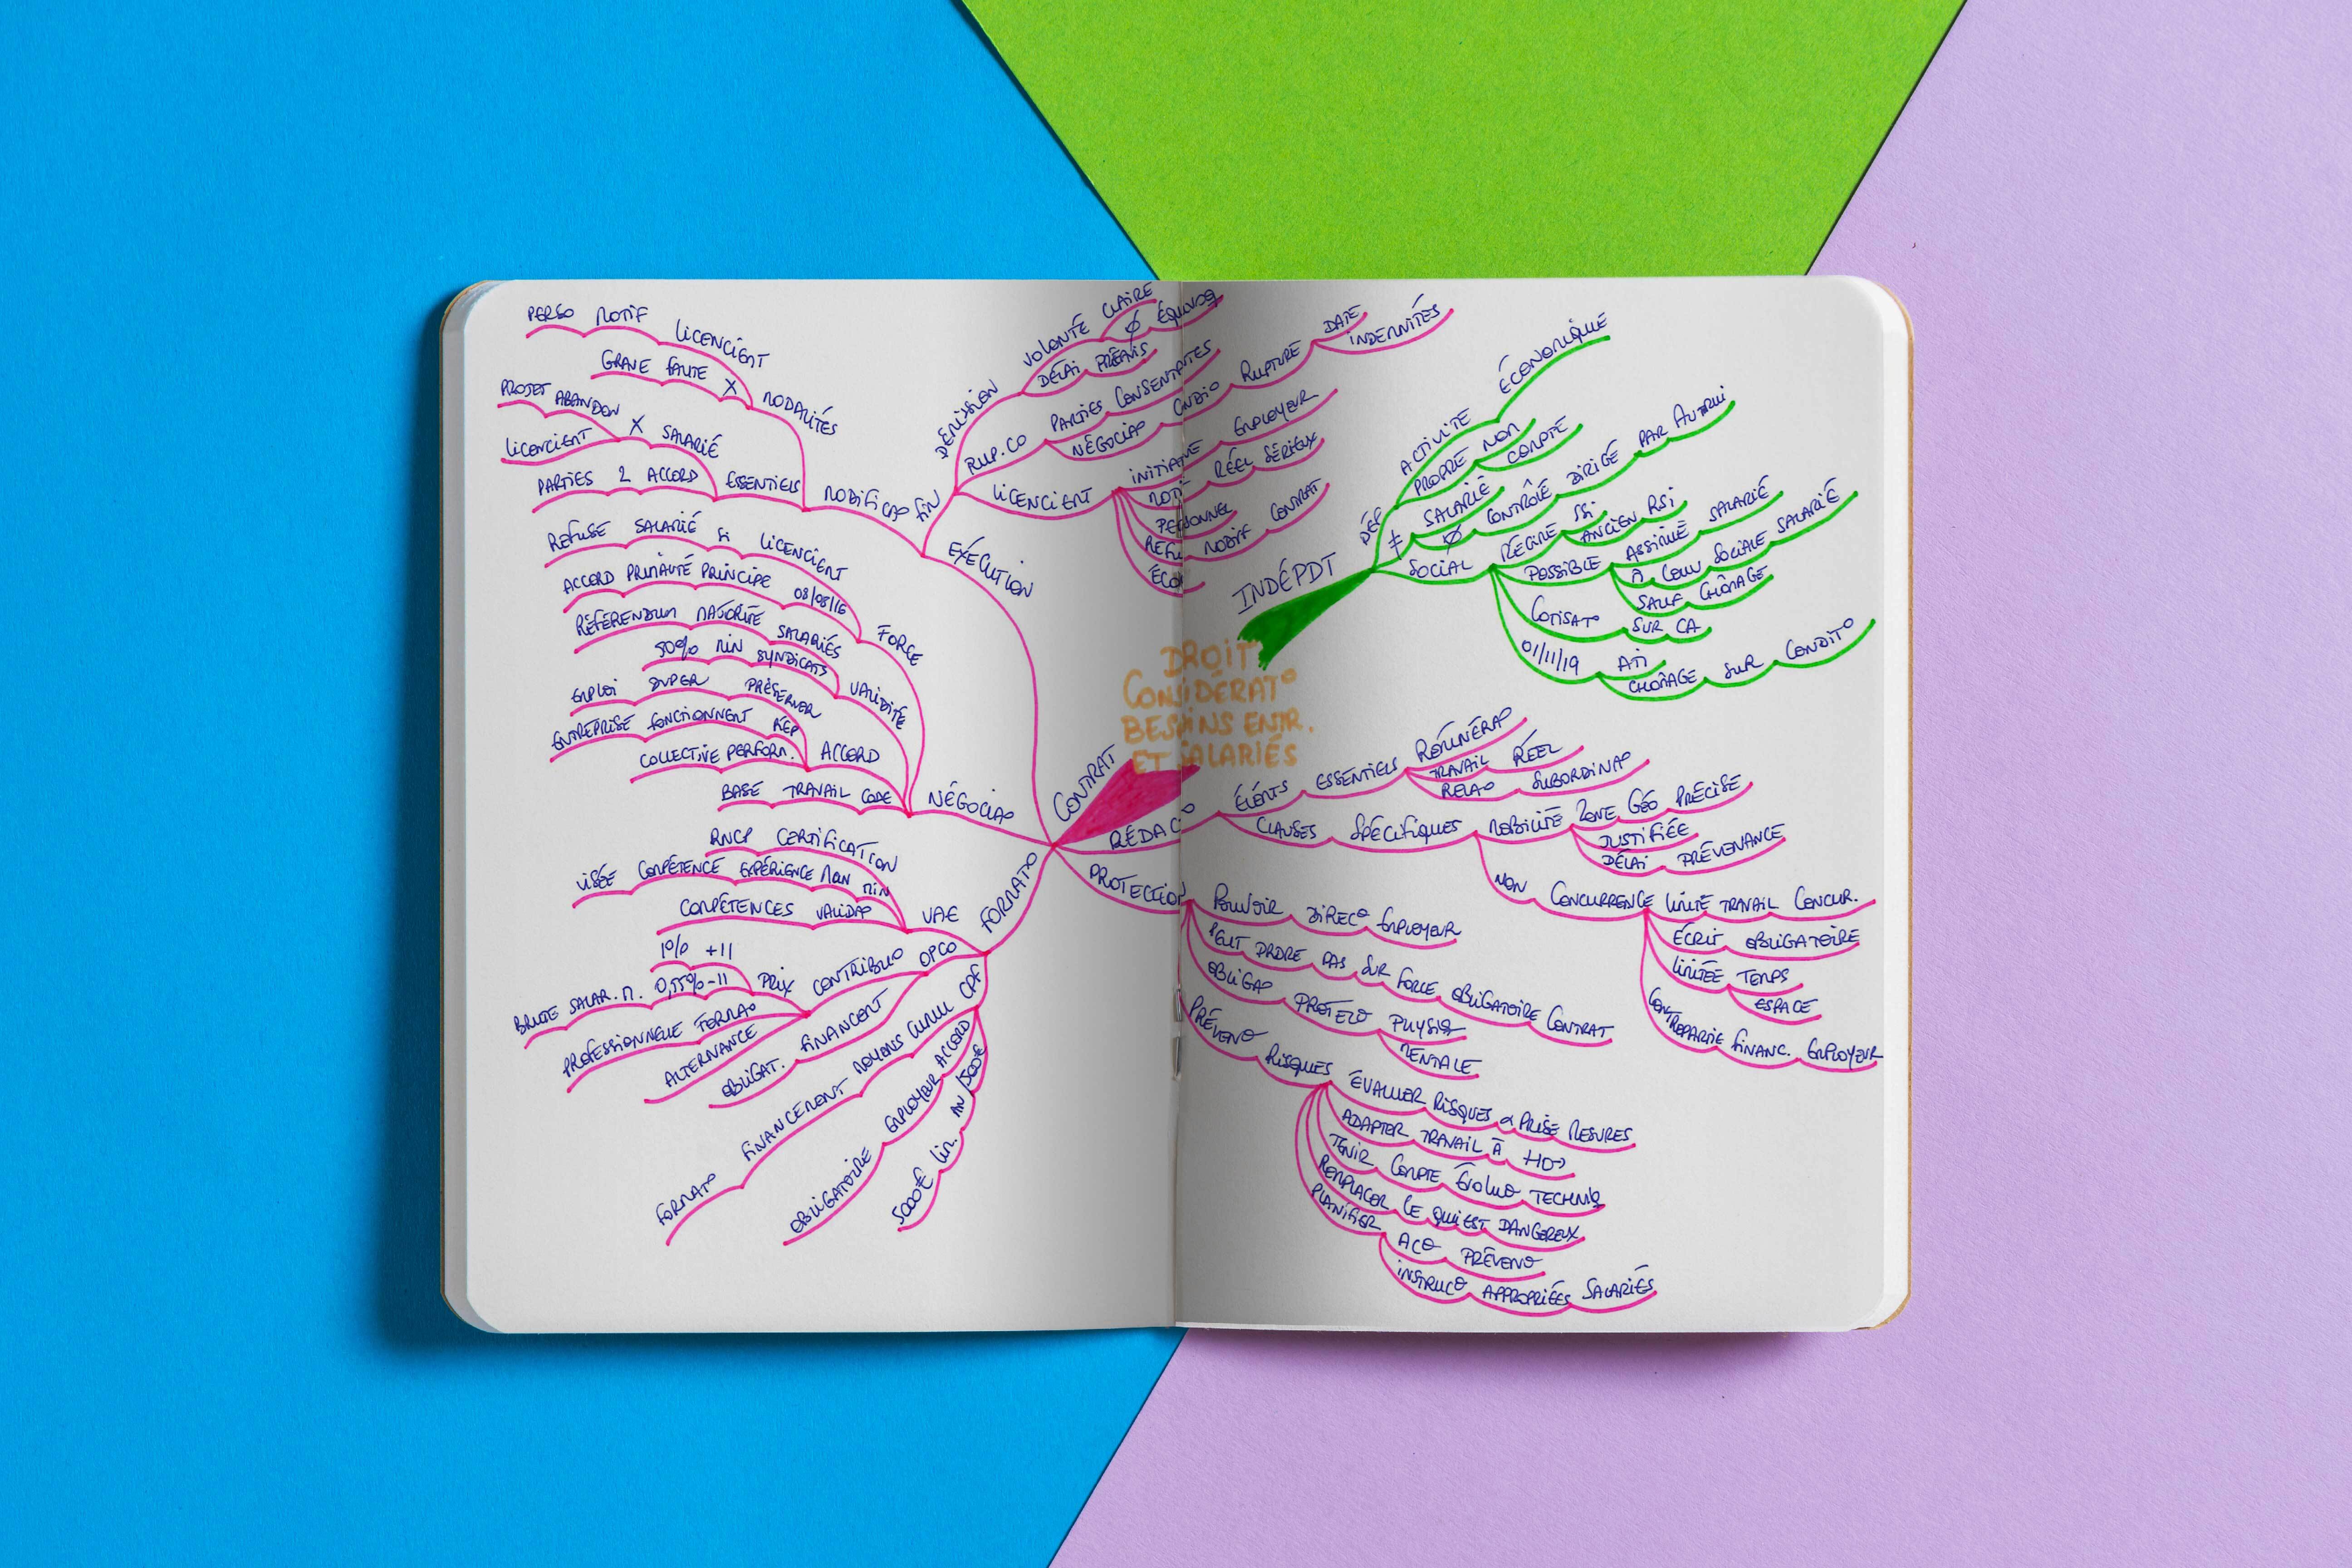 DROIT
CONSIDÉRATº
BESOINS ENTR.
ET SALARIÉS
INDÉPDT
DÉF
ACTIVITÉ ÉCONOMIQUE
PROPRE NOM
COMPTE
≠ SALARIÉ
Ø CONTRÔLÉ DIRIGÉ PAR AUTRUI
SOCIAL
RÉGIME SSI
ANCIEN RSI
POSSIBLE ASSIMILÉ SALARIÉ
COUV SOCIALE SALARIÉ
SAUF CHÔMAGE
COTISATº SUR CA
01/11/19 ATI
CHÔMAGE SUR CONDITº
CONTRAT
RÉDACº
ÉLÉMTS ESSENTIELS RÉMUNÉRAº
TRAVAIL RÉEL
RELAº SUBORDINAº
CLAUSES SPÉCIFIQUES MOBILITÉ ZONE GÉO PRÉCISE
JUSTIFIÉE
DÉLAI PRÉVENANCE
NON CONCURRENCE LIMITE TRAVAIL CONCUR.
ÉCRIT OBLIGATOIRE
LIMITÉE TEMPS
ESPACE
CONTREPARTIE FINANC. EMPLOYEUR
PROTECTION
POUVOIR DIRECº EMPLOYEUR
PEUT PRDRE PAS SUR FORCE OBLIGATOIRE CONTRAT
OBLIGAº PROTECº PHYSIQ
MENTALE
PRÉVENº RISQUES
ÉVALUER RISQUES & PRISE MESURES
ADAPTER TRAVAIL À
TENIR COMPTE ÉVOLUº TECHNIQ
REMPLACER CE QUI EST DANGEREUX
PLANIFIER
ACº PRÉVENº
INSTRUCº APPROPRIÉES SALARIÉS
FORMATº
CPF
5000€ LIM.
AN /500€
OBLIGATOIRE EMPLOYEUR ACCORD
FORMATº FINANCEMENT MOYENS CUMUL
OPCO
OBLIGAT. FINANCEMT
CONTRIBUº
ALTERNANCE
PROFESSIONNELLE FORMAº
PRIX
BRUTE SALAR. M. 0,55% -11
1% +11
VAE
COMPÉTENCES VALIDAº
VISÉE COMPÉTENCE EXPÉRIENCE 1AN MIN
RNCP CERTIFICATION
NÉGOCIAº
BASE TRAVAIL CODE
ACCORD
COLLECTIVE PERFORM.
ENTREPRISE FONCTIONNEMT RÉP
EMPLOI DVPER PRÉSERVER
VALIDITÉ
50% MIN SYNDICATS
RÉFÉRENDUM MAJORITÉ SALARIÉS
FORCE
ACCORD PRIMAUTÉ PRINCIPE 08/08/16
REFUSE SALARIÉ SI LICENCIEMT
EXÉCUTION
MODIFICAº
ESSENTIELS
PARTIES 2 ACCORD
X SALARIÉ
LICENCIEMT
PROJET ABANDON
MODALITÉS
GRAVE FAUTE X
PERSO MOTIF LICENCIEMT
FIN
DÉMISSION
VOLONTÉ CLAIRE
Ø ÉQUIVOQ
DÉLAI PRÉAVIS
RUP.CO
PARTIES CONSENTANTES
NÉGOCIAº CONDIº RUPTURE DATE
INDEMNITÉS
LICENCIEMT
INITIATIVE EMPLOYEUR
MOTIF RÉEL SÉRIEUX
PERSONNEL
REFUS MODIF CONTRAT
ÉCO